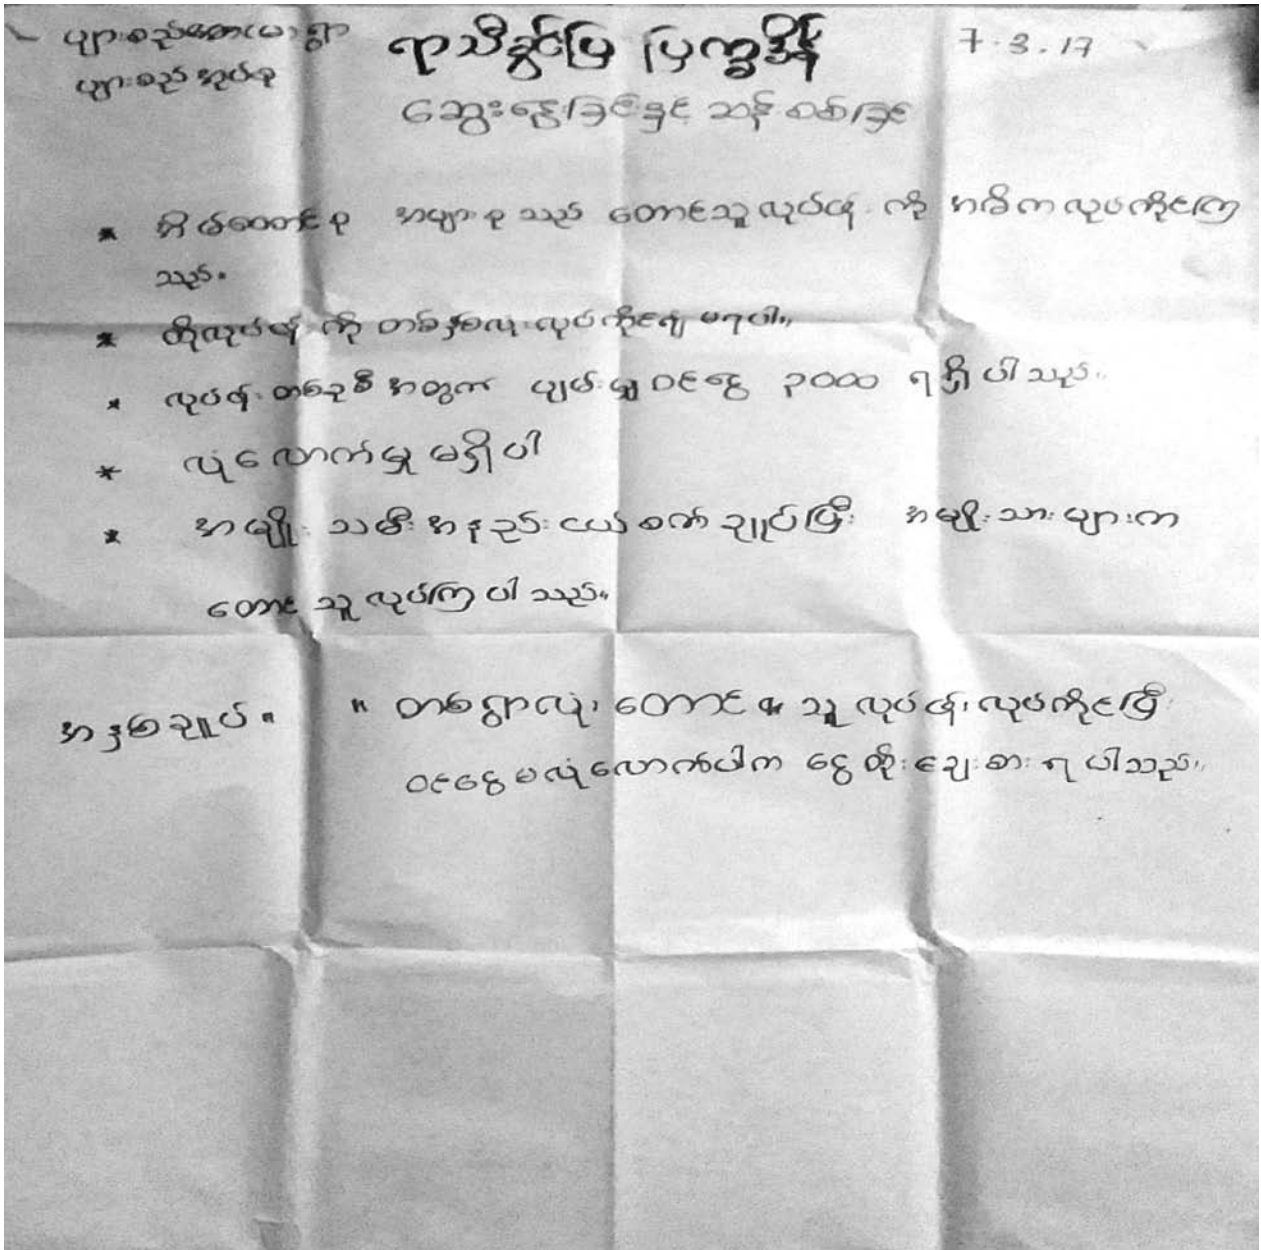 များစည်တော(မ)ရွာ
များစည် အုပ်စု
ရာသီခွင်ပြ ပြက္ခဒိန်
7.3.17
ဆွေးနွေးခြင်းနှင့် ဆန်းစစ်ခြင်း
* အိမ်ထောင်စု အများစုသည် တောင်သူလုပ်ငန်းကို အဓိကလုပ်ကိုင်ကြ
သည်။
* ထိုလုပ်ငန်းကို တစ်နှစ်လုံးလုပ်ကိုင်၍ မရပါ။
* လုပ်ငန်းတစ်ခုစီအတွက် ပျမ်းမျှဝင်ငွေ ၃၀၀၀ ရရှိပါသည်။
* လုံလောက်မှု မရှိပါ
* အမျိုးသမီးအနည်းငယ်စက်ချုပ်ပြီး အမျိုးသားများက
တောင်သူလုပ်ကြပါသည်။
အနှစ်ချုပ်။ " တစ်ရွာလုံး တောင်သူလုပ်ငန်းလုပ်ကိုင်ပြီး
ဝင်ငွေမလုံလောက်ပါက ငွေတိုးချေးစားရပါသည်။